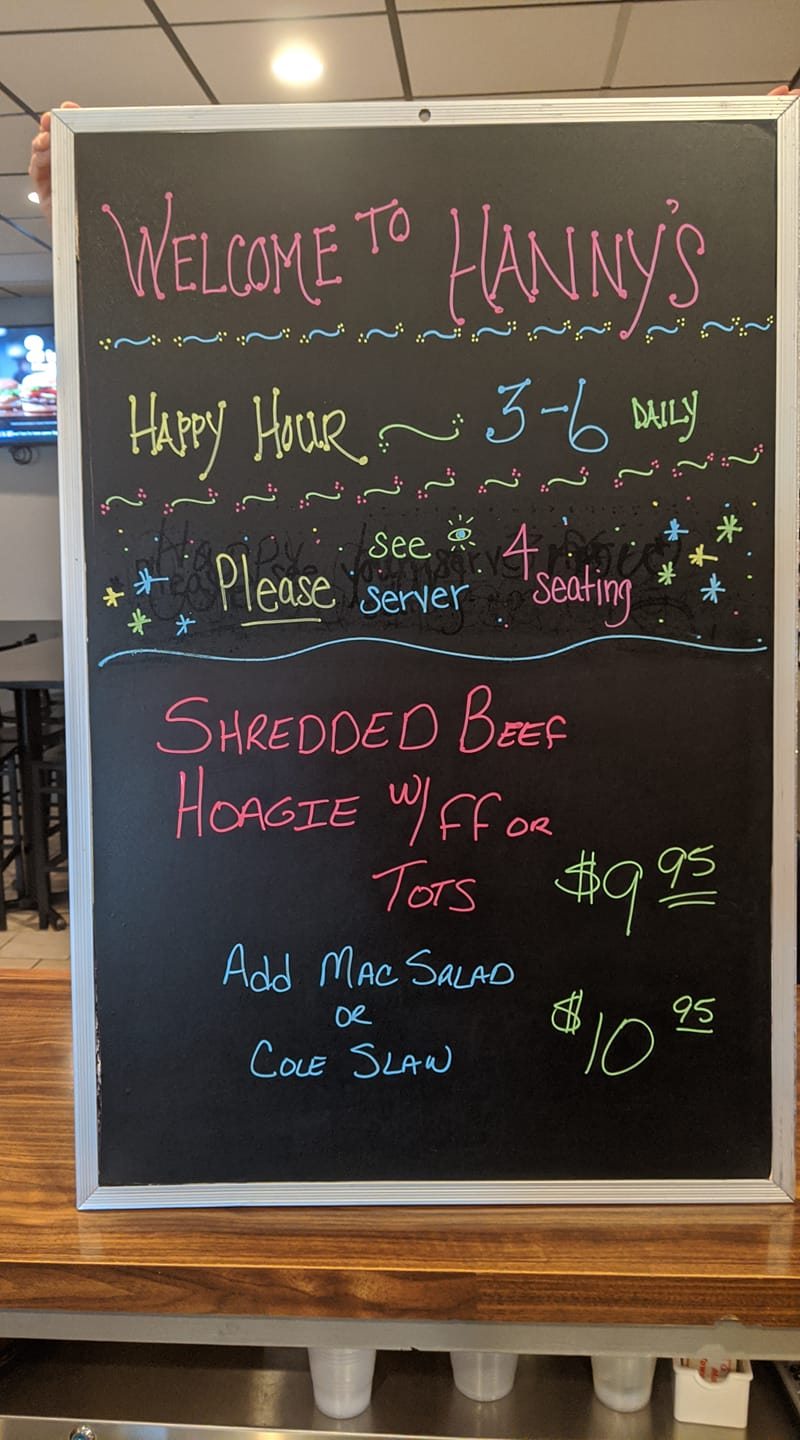 WELCOME TO HANNY'S
HAPPY HOUR ~ 3-6 DAILY
Please see server 4 seating
SHREDDED BEEF
HOAGIE W/ FF OR
TOTS $9 95
Add MAC SALAD
OR
COLE SLAW $10 95